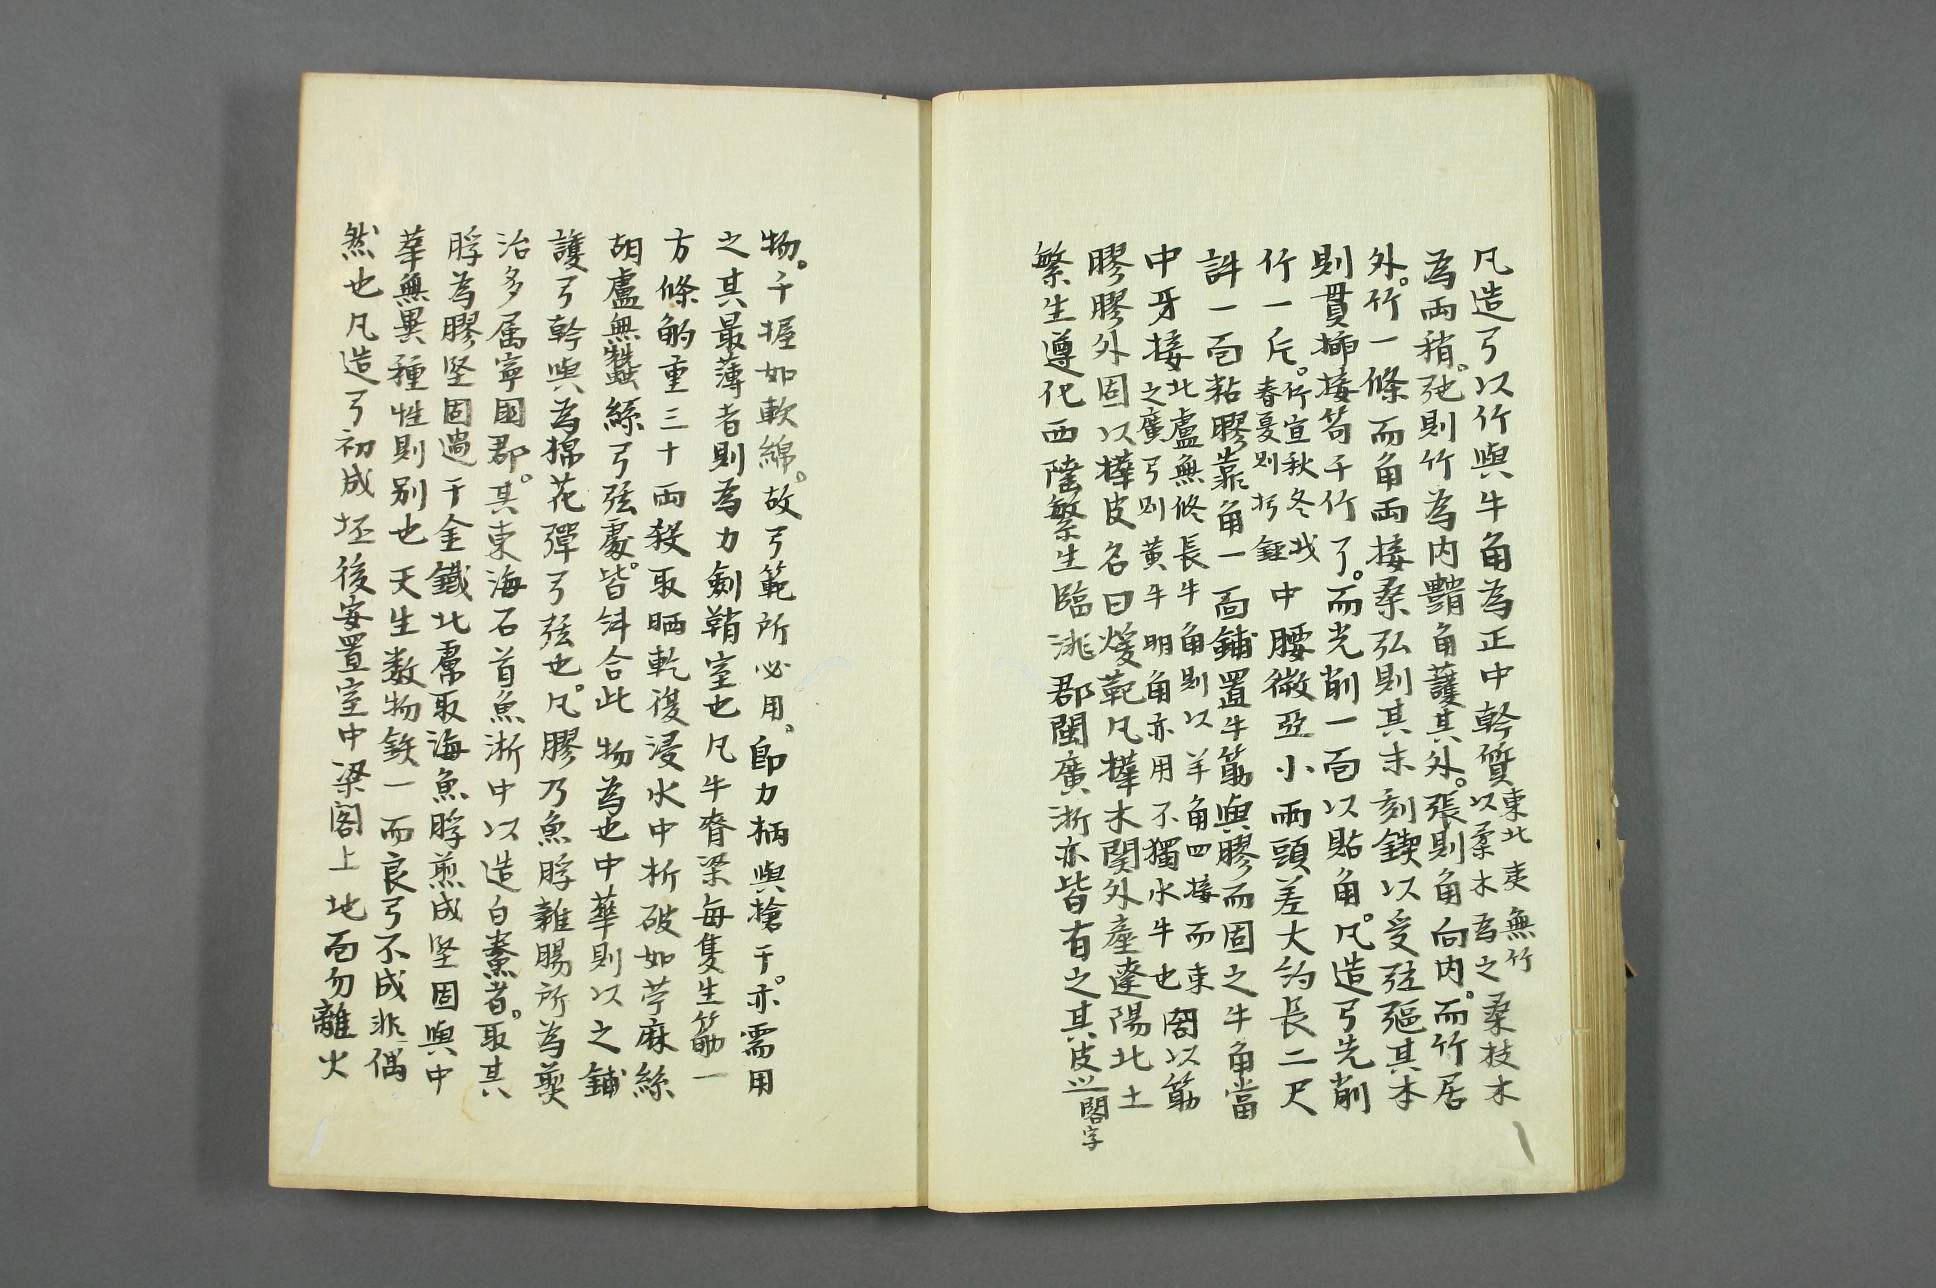 凡造弓以竹與牛角為正中幹質東北夷無竹以柔木為之桑枝木
為兩稍。弛則竹為内體角護其外。張則角向内。而竹居
外。竹一條而角兩接桑弘則其末刻鍥以受弦彄其本
則貫揷接笱于竹了。而光削一面以貼角。凡造弓先削
竹一斤。竹宜秋冬伐春夏則朽蛀中腰微亞小兩頭差大約長二尺
許一面粘膠靠角一面鋪置牛筋與膠而固之牛角當
中牙接北虜無修長牛角則以羊角四接而束之廣弓則黃牛明角亦用不獨水牛也固以筋
膠膠外固以樺皮名曰煖靶凡樺木関外產遼陽北土
繁生遵化西陲繁生臨洮郡閩廣浙亦皆有之其皮䕶閣字
物。手握如軟綿。故弓範所必用。即刀柄與槍干。亦需用
之其最薄者則為刀劍鞘室也凡牛脊梁每隻生筋一
方條酌重三十兩殺取晒乾復浸水中析破如苧麻絲
胡盧無蠶絲弓弦處。皆糾合此物為也中華則以之鋪
護弓幹與為棉花彈弓弦也。凡膠乃魚脬雜腸所為煎
治多属寧國郡。其東海石首魚浙中以造白鯗者。取其
脬為膠堅固過于金鐵北虜取海魚脬煎成堅固與中
華無異種性則别也天生数物缺一而良弓不成非偶
然也凡造弓初成坯後安置室中梁閣上地面勿離火